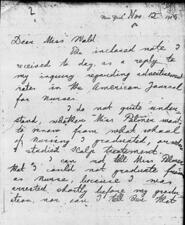 2
New York Nov 12 19
Dear Miss Wald
The inclosed note I
received to day, as a reply to
my inquiry regarding advertisement
rates in the American Journal
for nurses.
I do not quite under-
stand, whether Miss Palmer want
to know from what school
of nursing I graduated, or
of studied
treatement.
I can not tell Miss Palmer
that I could not graduate
as nurse, because I was
arrested shortly before my gradu-
ation, nor can I tell her that